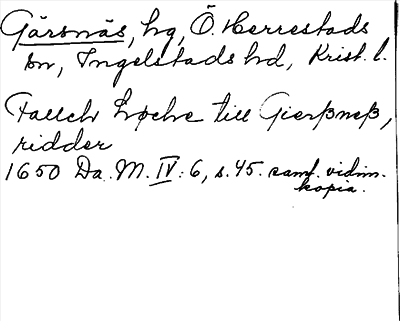 Gärsnäs, hg, Ö. Herrestads
sn, Ingelstads hd, Krist. l.
Fallch Løche till Gierßneß,
ridder
1650 Da. M. IV: 6, s. 45. samt. vidim.
kopia.